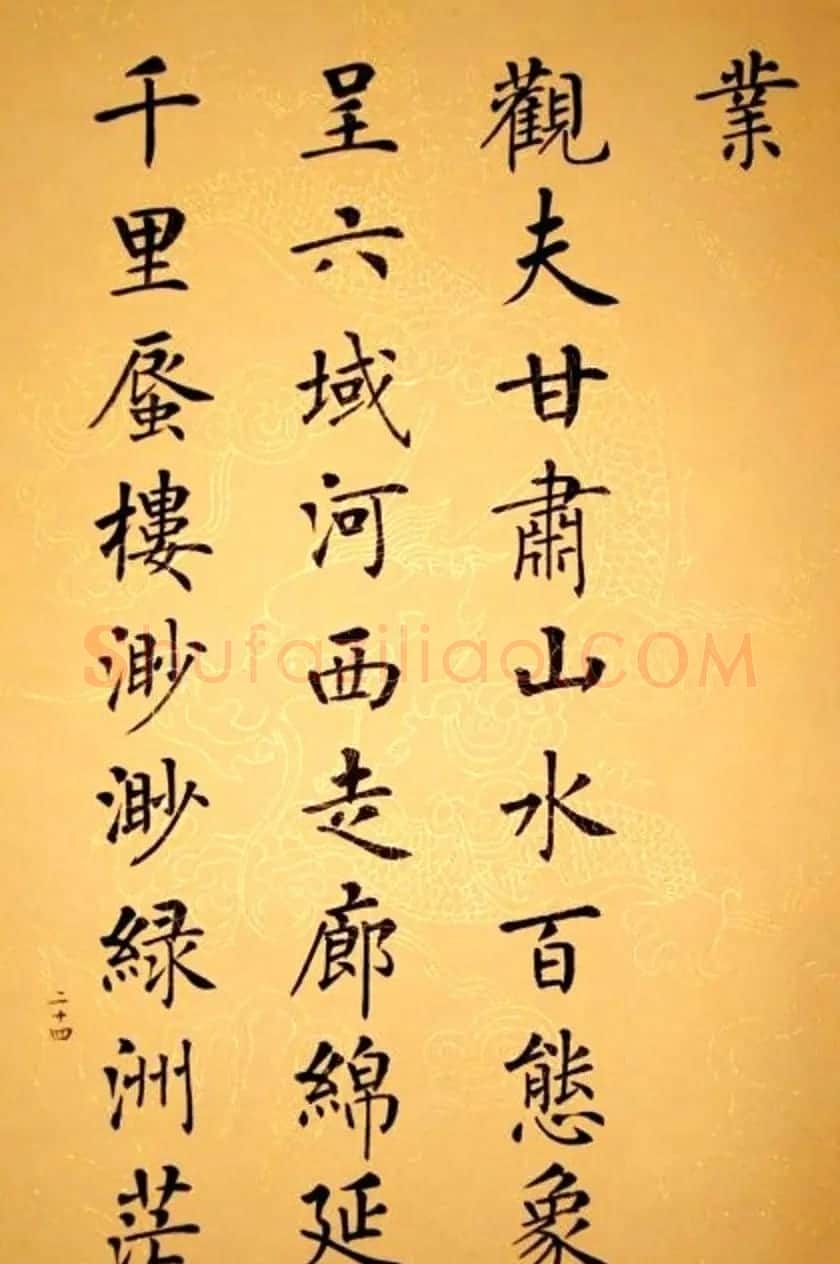 業
觀夫甘肅山水百態象
呈六域河西走廊綿延
千里蜃樓渺渺緑洲茫
二十四
Shufaziliao.COM